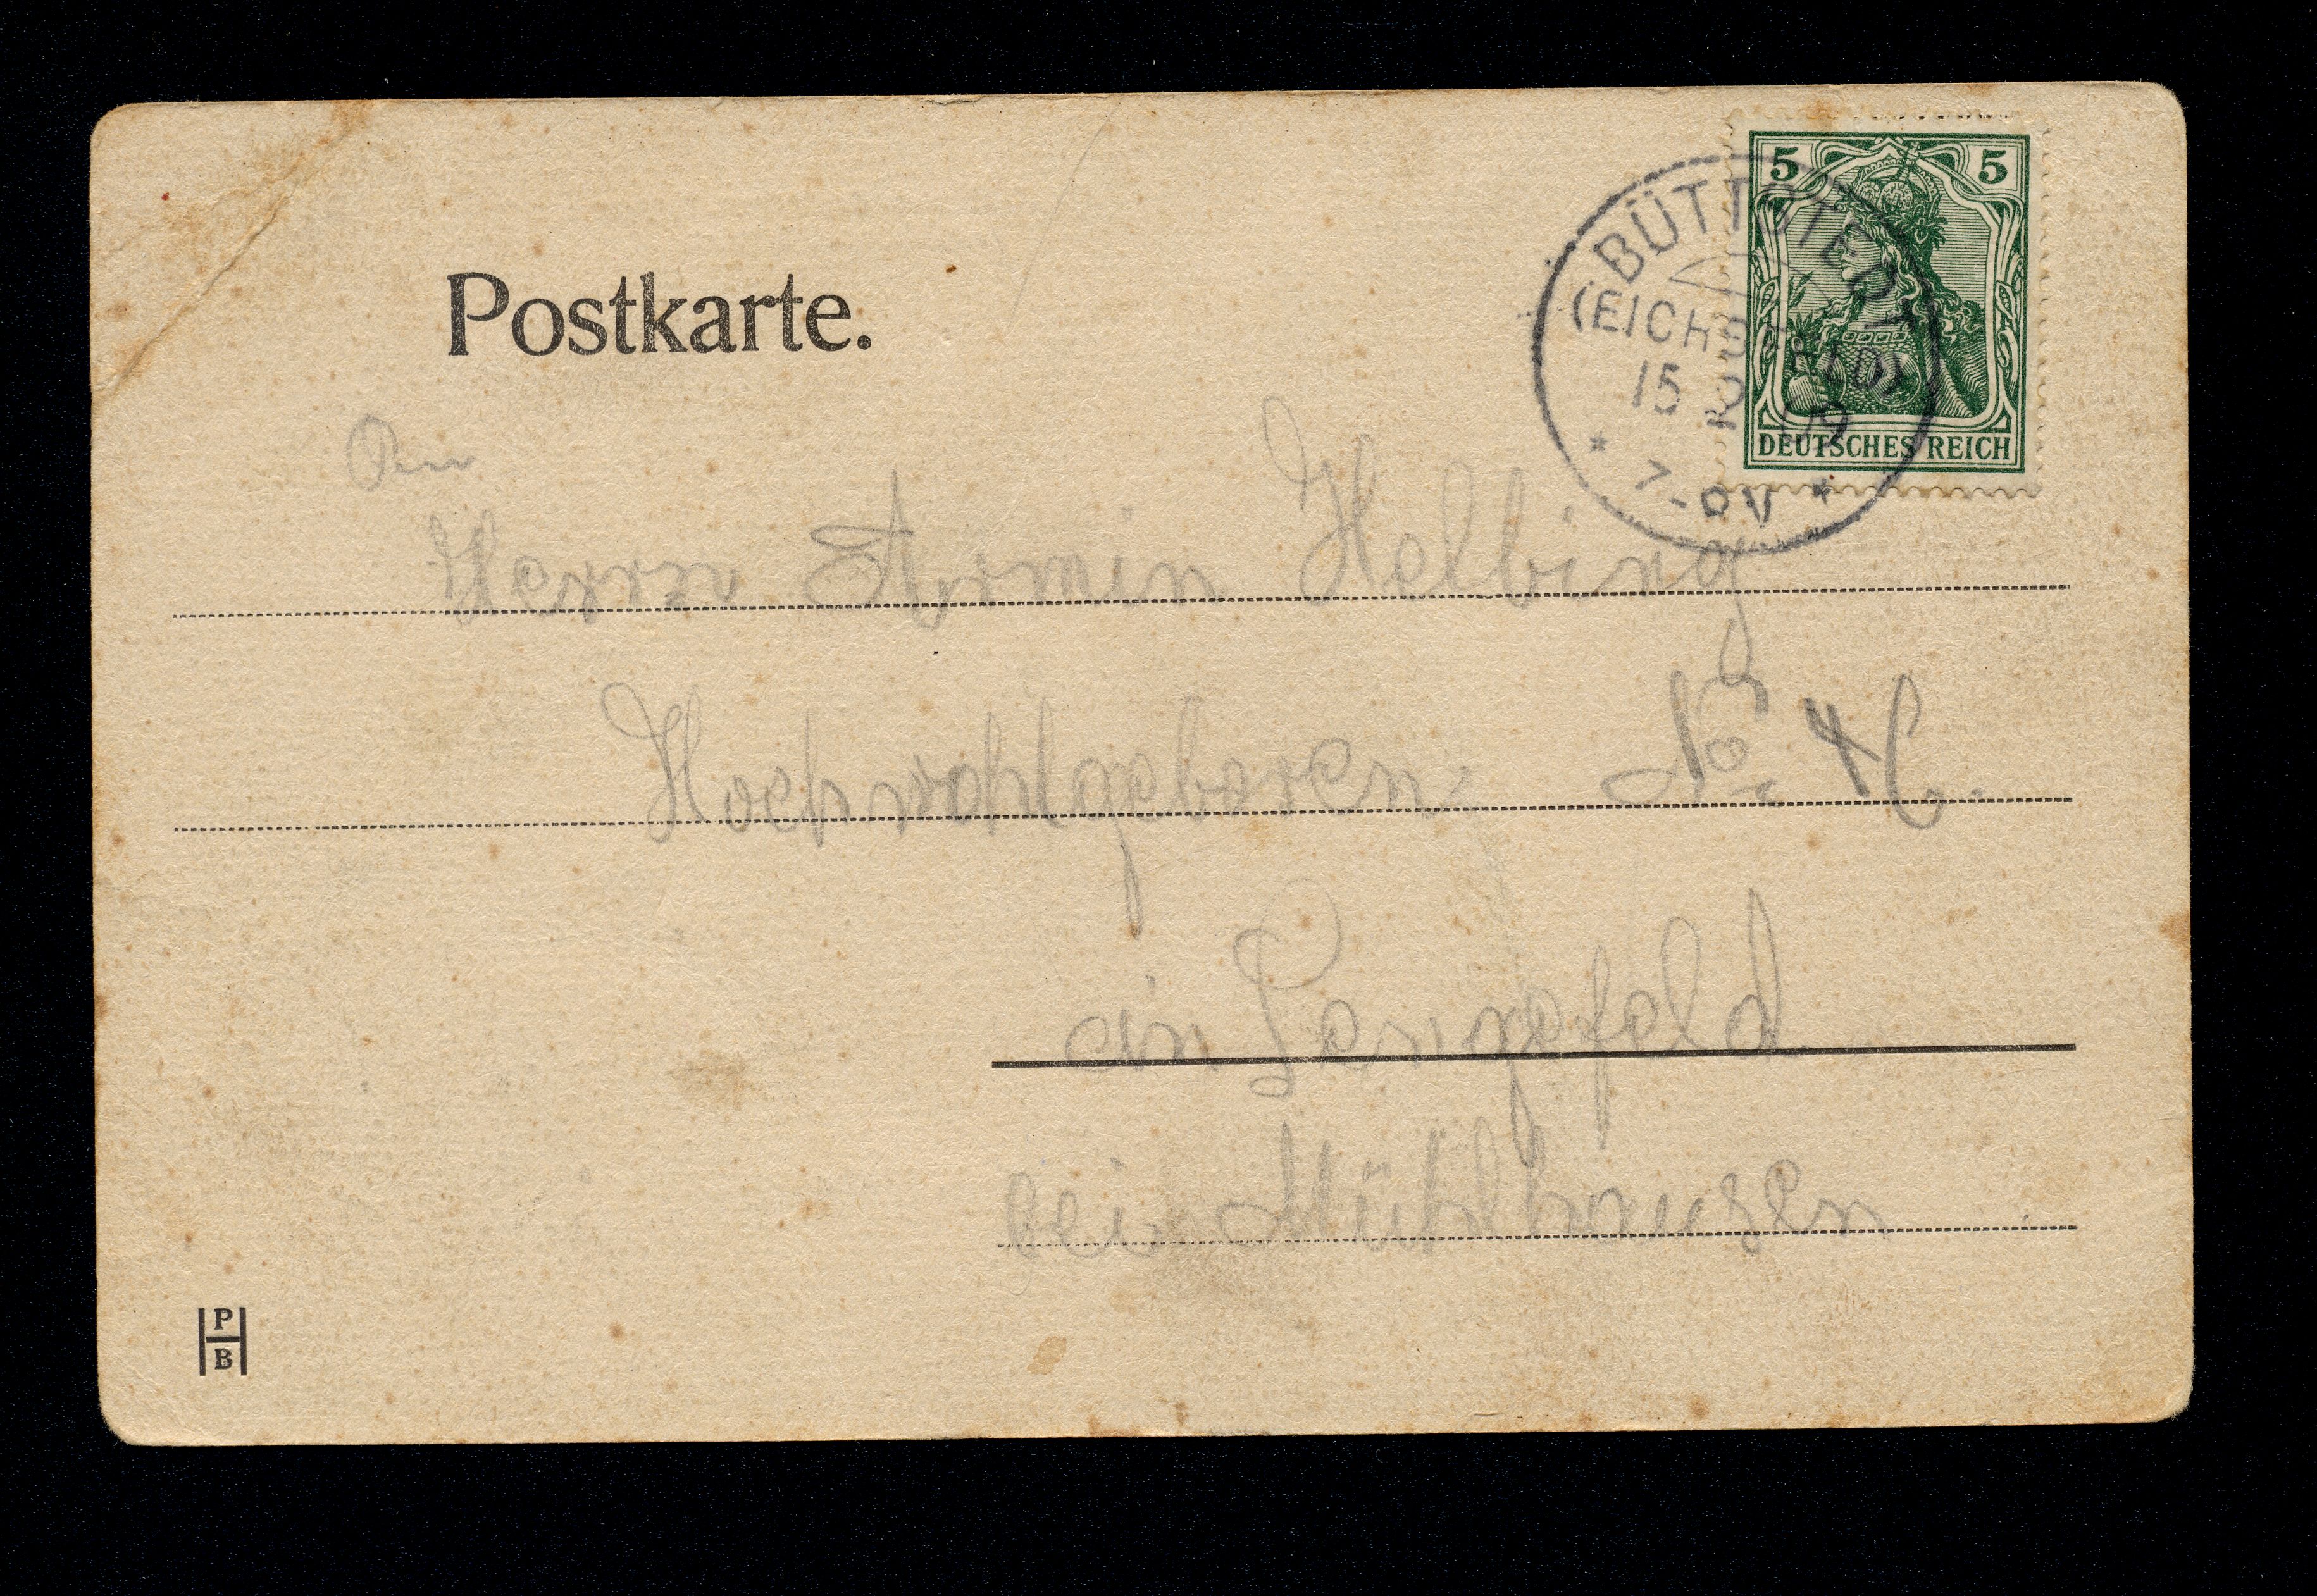 Postkarte.
5 5
DEUTSCHES REICH
BÜTTSTEDT
(EICHSFELD)
15 2 09
* 7-8V *
An
Herrn Armin Helbing
Hochwohlgeboren No
in Lengefeld
bei Mühlhausen
P
B